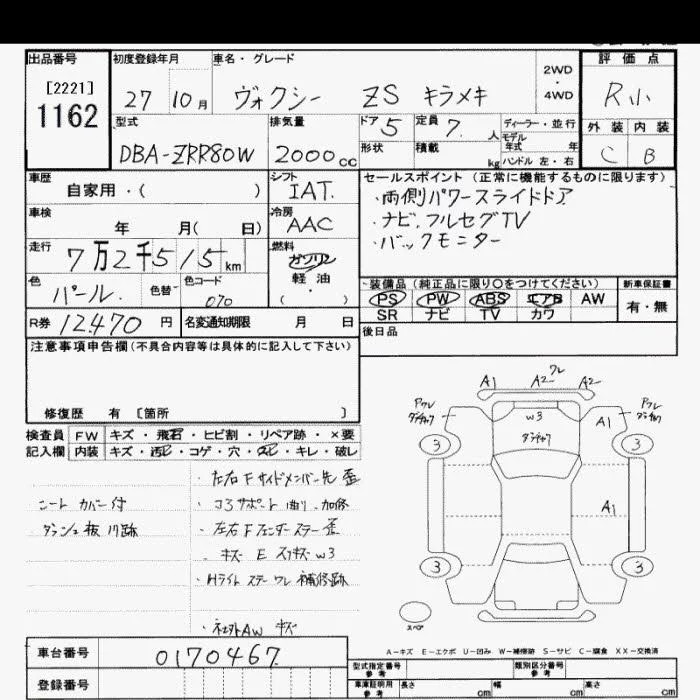 出品番号 初度登録年月 車名・グレード 評価点
[2221]
1162
27 10月 ヴォクシー ZS キラメキ
2WD
・
4WD
R小
外装 内装
C B
型式 排気量 ドア 5 定員 7. 人 ディーラー・並行
モデル
年式 年
DBA-ZRR80W 2000cc 形状 積載 kg ハンドル 左・右
車歴 シフト
自家用・( ) IAT.
セールスポイント(正常に機能するものに限ります)
・両側パワースライドドア
・ナビ,フルセグTV
・バックモニター
車検 年 月( 日) 冷房
AAC
走行 7万2千515km
燃料
ガソリン
軽油
・
( )
色 パール. 色替 色コード 070
装備品(純正品に限り○をつけてください) 新車保証書
PS PW ABS エアB AW 有・無
SR ナビ TV カワ
R券 12470円 名変通知期限 月 日
後日品
注意事項申告欄(不具合内容等は具体的に記入して下さい)
修復歴 有 [箇所 ]
検査員 FW キズ・飛石・ヒビ割・リペア跡・×要
記入欄 内装 キズ・汚れ・コゲ・穴・スレ・キレ・破レ
A1 ワレ A2 A2
Pワレ W3 A1 Pワレ
3 3
A1
3 3
スペア
・左右Fサイドメンバー先歪
・コアサポート曲り.加修
・左右Fフェンダーステー歪
・キズ E スリキズ W3
・Hライトステーワレ補修跡
・社外AW キズ
シートカバー付
・ダッシュ板 跡
A-キズ E-エクボ U-凹み W-補修跡 S-サビ C-腐食 XX-交換済
車台番号 0170467
登録番号
型式指定番号 参考 類別区分番号 参考
車庫証明用 参考 長さ cm 幅 cm 高さ cm